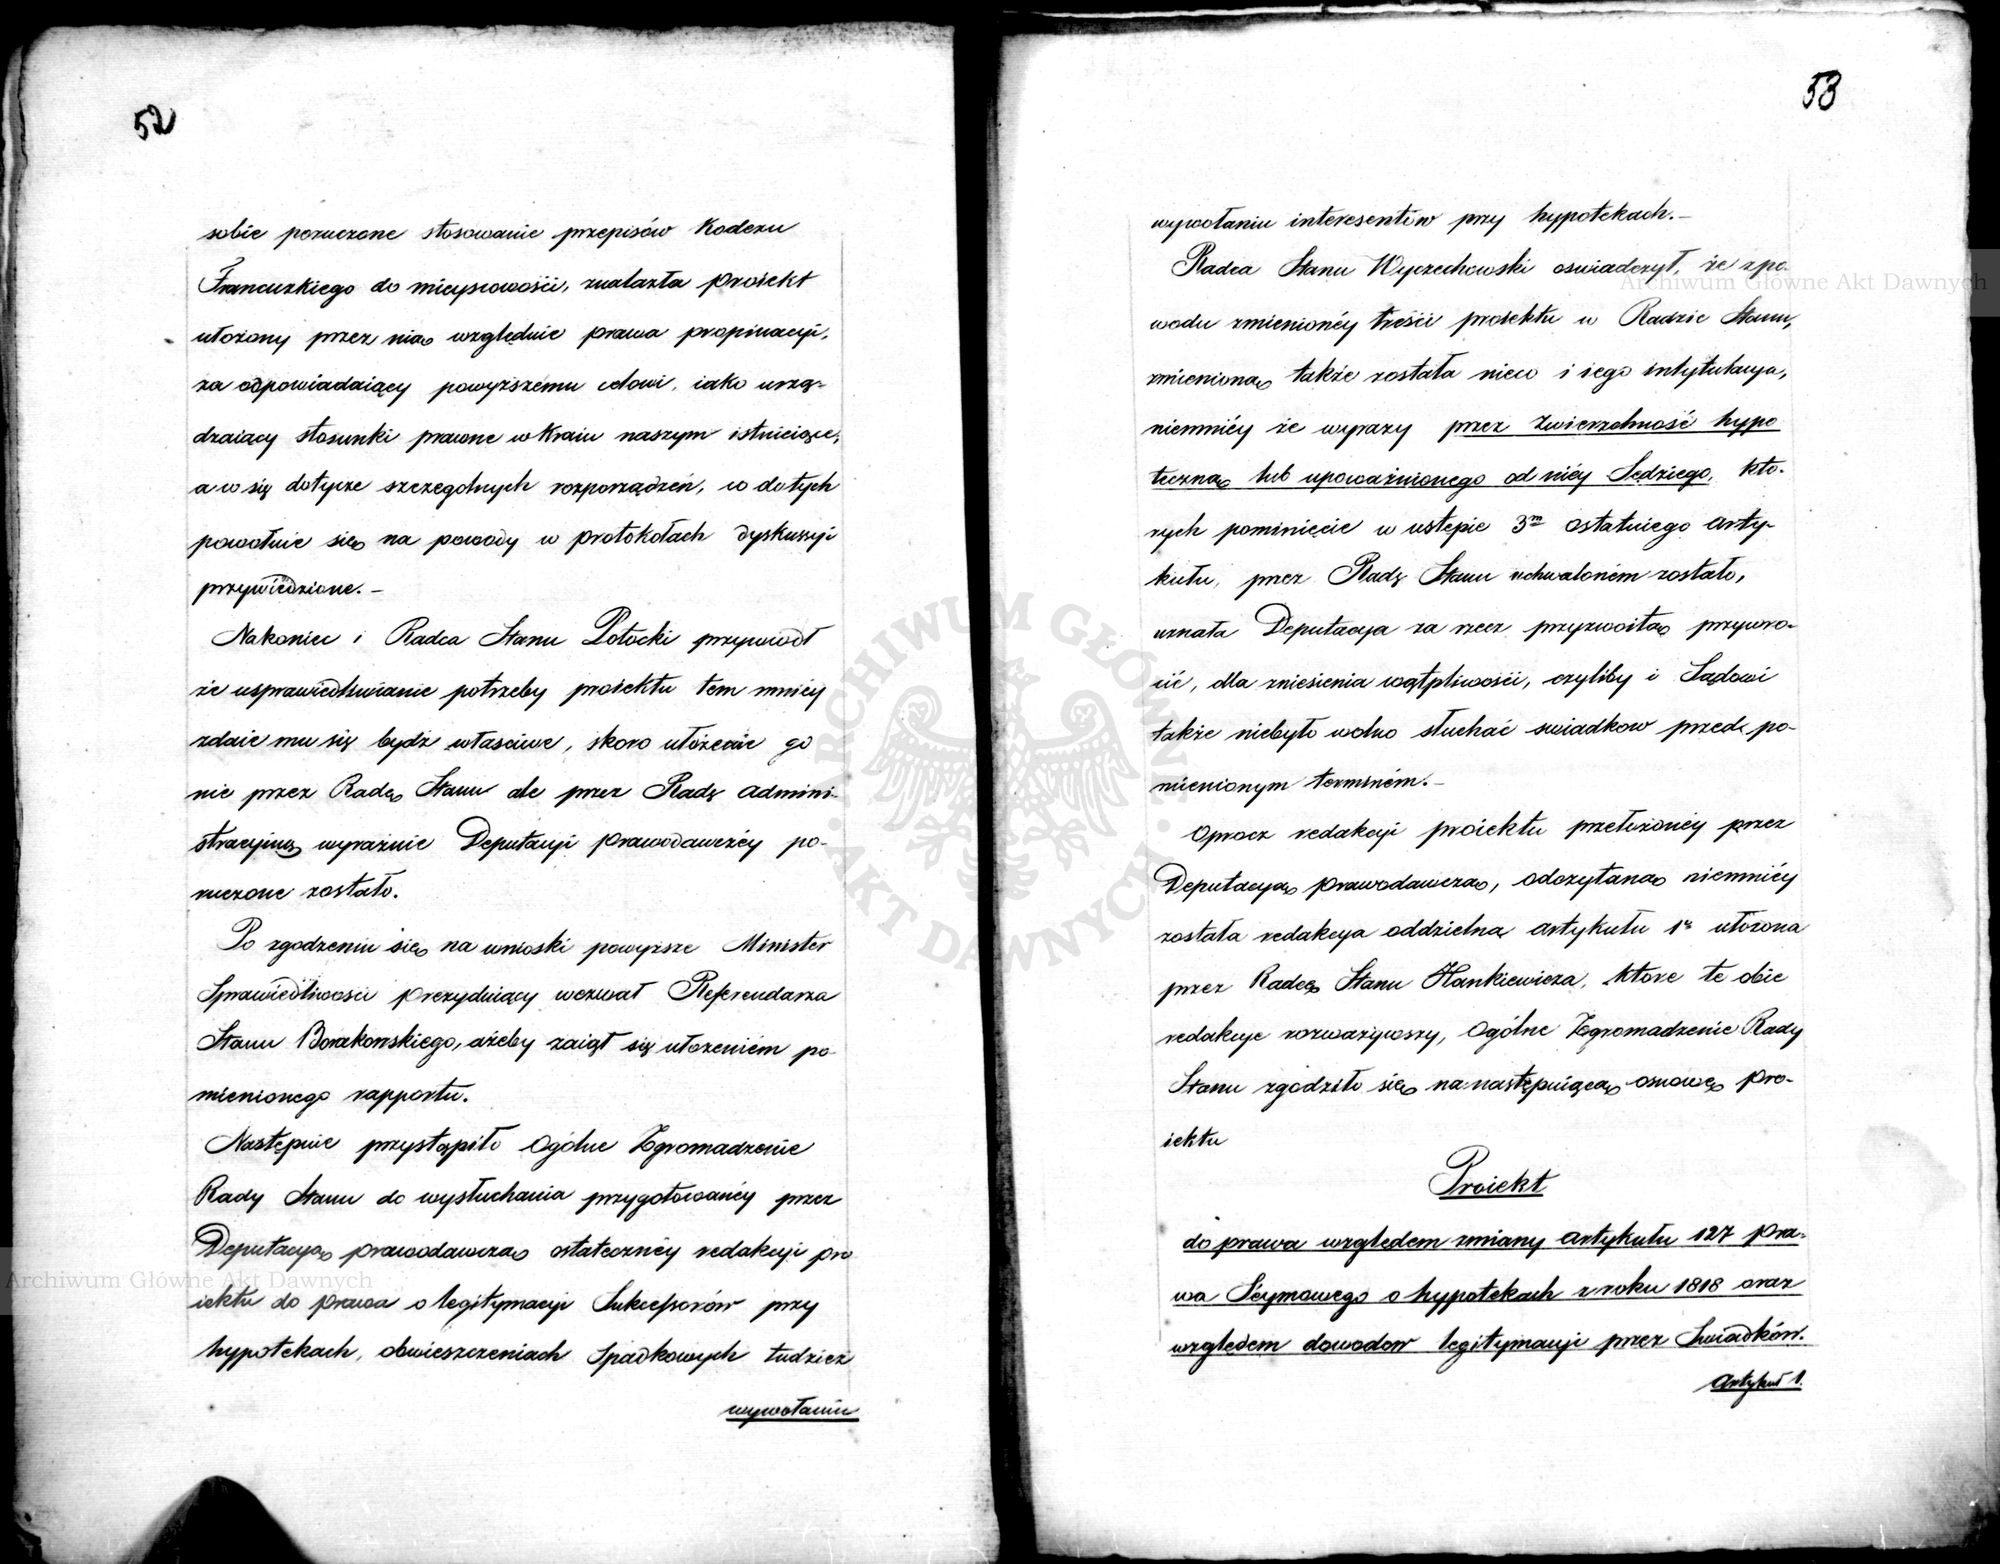 52
sobie poruczone stosowanie przepisów Kodexu
Francuzkiego do mieyscowości, znalazła proiekt
ułożony przez nią względnie prawa propinacyi,
za odpowiadaiący powyższemu celowi, iako urzą-
dzaiący stosunki prawne w Kraiu naszym istnieiące,
a co się dotycze szczegolnych rozporządzeń, co do tych
powołuie się na powody w protokołach dyskussyi
przywiedzione.–
Nakoniec i Radca Stanu Potocki przywiodł
że usprawiedliwianie potrzeby proiektu tem mniéy
zdaie mu się bydź właściwe, skoro ułożenie go
nie przez Radę Stanu ale przez Radę Admini-
stracyiną wyraźnie Deputacyi Prawodawczéy po-
ruczone zostało.
Po zgodzeniu się na wnioski powyższe Minister
Sprawiedliwości prezyduiący wezwał Referendarza
Stanu Borakowskiego, ażeby zaiął się ułożeniem po-
mienionego rapportu.
Następnie przystąpiło Ogólne Zgromadzenie
Rady Stanu do wysłuchania przygotowanéy przez
Deputacyą prawodawczą ostatecznéy redakcyi pro
iektu do prawa o legitymacyi Sukcessorów przy
hypotekach, obwieszczeniach Spadkowych tudzież
wywołaniu
53
wywołaniu interesentów przy hypotekach.–
Radca Stanu Wyczechowski oświadczył, że z po-
wodu zmienionéy treści proiektu w Radzie Stanu,
zmienioną także została nieco i iego intytulacya,
niemniéy że wyrazy przez Zwierzchność hypo
teczną lub upoważnionego od niéy Sędziego, któ-
rych pominięcie w ustępie 3m ostatniego arty-
kułu, przez Radę Stanu uchwaloném zostało,
uznała Deputacya za rzecz przyzwoitą przywró-
cić, dla zniesienia wątpliwości, czyliby i Sądowi
także niebyło wolno słuchać swiadkow przed po-
mienionym terminém.–
Oprocz redakcyi proiektu przełożonéy przez
Deputacyą prawodawczą, odczytaną niemniéy
została redakcya oddzielna artykułu 1o ułożona
przez Radcę Stanu Hankiewicza, które te obie
redakcye rozważywszy, Ogólne Zgromadzenie Rady
Stanu zgodziło się na następuiącą osnowę pro-
iektu
Proiekt
do prawa względem zmiany artykułu 127 pra-
wa Séymowego o hypotekach z roku 1818 oraz
względem dowodow legitymacyi przez Swiadków.
Artykuł 1.
ARCHIWUM GŁÓWNE AKT DAWNYCH
Archiwum Główne Akt Dawnych
Archiwum Główne Akt Dawnych